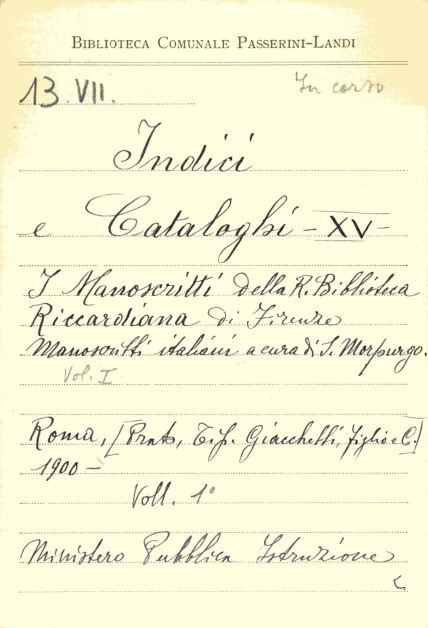 BIBLIOTECA COMUNALE PASSERINI-LANDI
13.VII.
In corso
Indici
e Cataloghi - XV -
I Manoscritti della R. Biblioteca
Riccardiana di Firenze
Manoscritti italiani a cura di S. Morpurgo.
Vol. I
Roma, [Prato, Tip. Giachetti, figlio e C.]
1900 -
Voll. 1°
Ministero Pubblica Istruzione